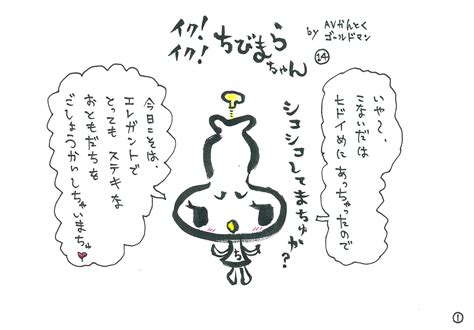 イク！イク！ちびまらちゃん
⑭
by AVかんとく
ゴールドマン
いや〜、
こないだは
ヒドイめに
あっちゃったので
シコシコしてまちゅか？
今日こそは、
エレガントで
とっても ステキな
おともだちを
ごしょうかいしちゃいまちゅ♥
ち
①